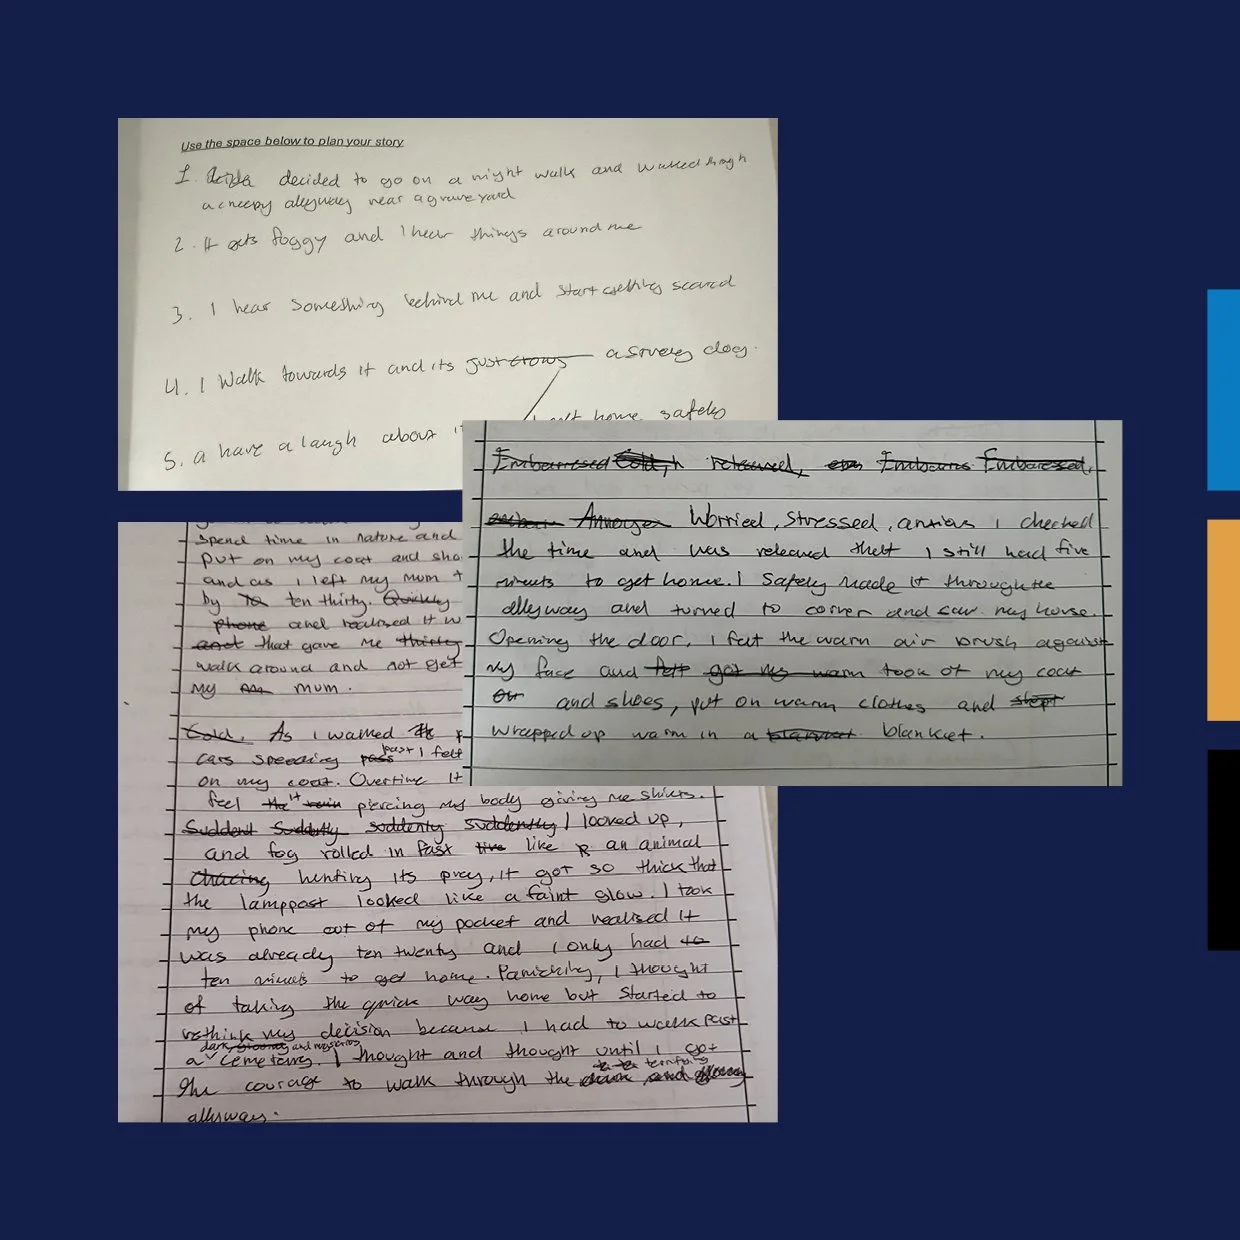 Use the space below to plan your story
1. decided to go on a night walk and walked
a creepy alleyway near a graveyard
2. It gets foggy and I hear things around me
3. I hear something behind me and start getting scared
4. I walk towards it and its just crows a dog.
5. a have a laugh about home safely
spend time in nature and
put on my coat and sho
and as I left my mum t
by to ten thirty. Quickly
phone and realised it w
and that gave me thirty
walk around and not get
my mum.
Cold. As I walked
cars speeding pass past I felt
on my coat. Overtime it
feel the it rain piercing my body giving me shivers.
Suddent Suddently suddenly suddenly I looked up,
and fog rolled in fast like an animal
chacing hunting its prey, it got so thick that
the lamppost looked like a faint glow. I took
my phone out of my pocket and realised it
was already ten twenty and I only had to
ten minuets to get home. Panicking, I thought
of taking the quick way home but started to
rethink my decision because I had to walk past
a dark, gloomy and mysterios cemetary. I thought and thought until I got
the courage to walk through the dark and
alleyway.
Embarresed released, Embarresed,
Annoyen Worried, stressed, I checked
the time and was releaved thett I still had five
minuets to get home. I safely made it through the
alleyway and turned to corner and saw my house.
Opening the door, I felt the warm air brush against
my face and felt got my warm took of my coat
and shoes, put on warm clothes and
wrapped up warm in a blanket.